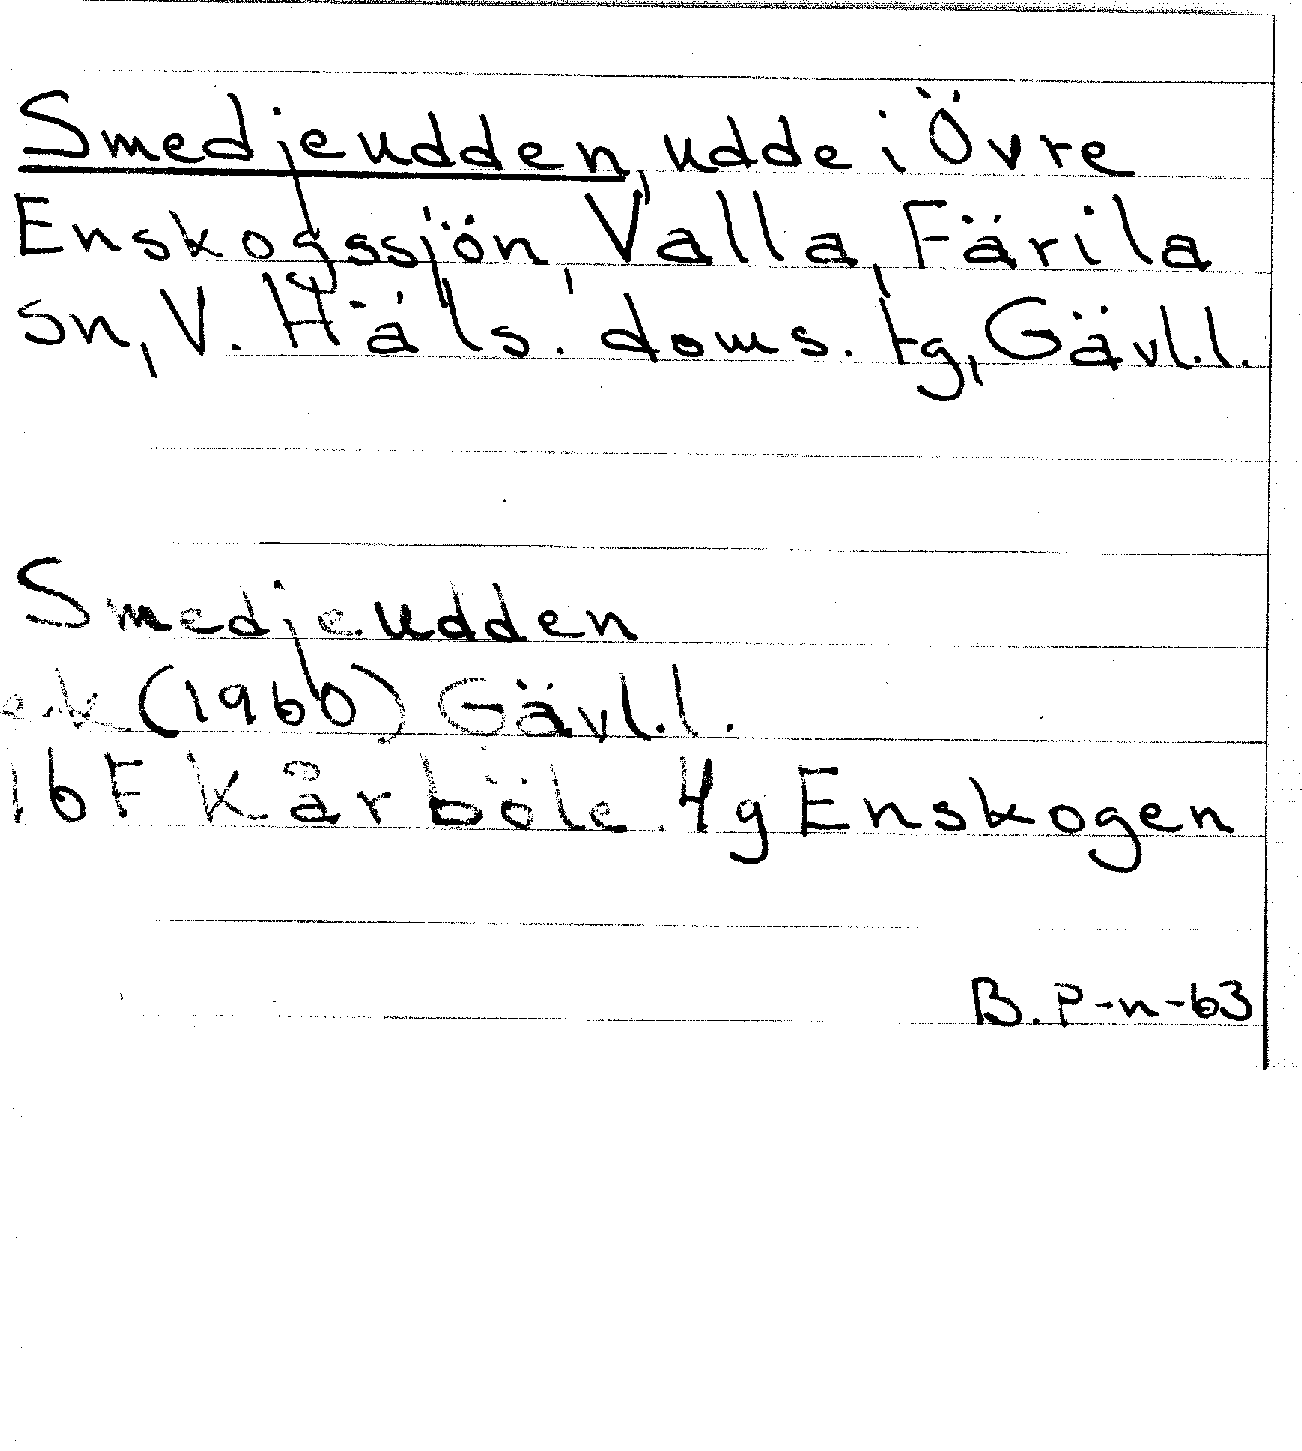 Smedjeudden, udde i Övre
Enskogssjön, Valla, Färila
sn, V. Häls. doms. tg, Gävl.l.
Smedjeudden
e.k (1960) Gävl.l.
16F Kårböle 4g Enskogen
B. P-n-63